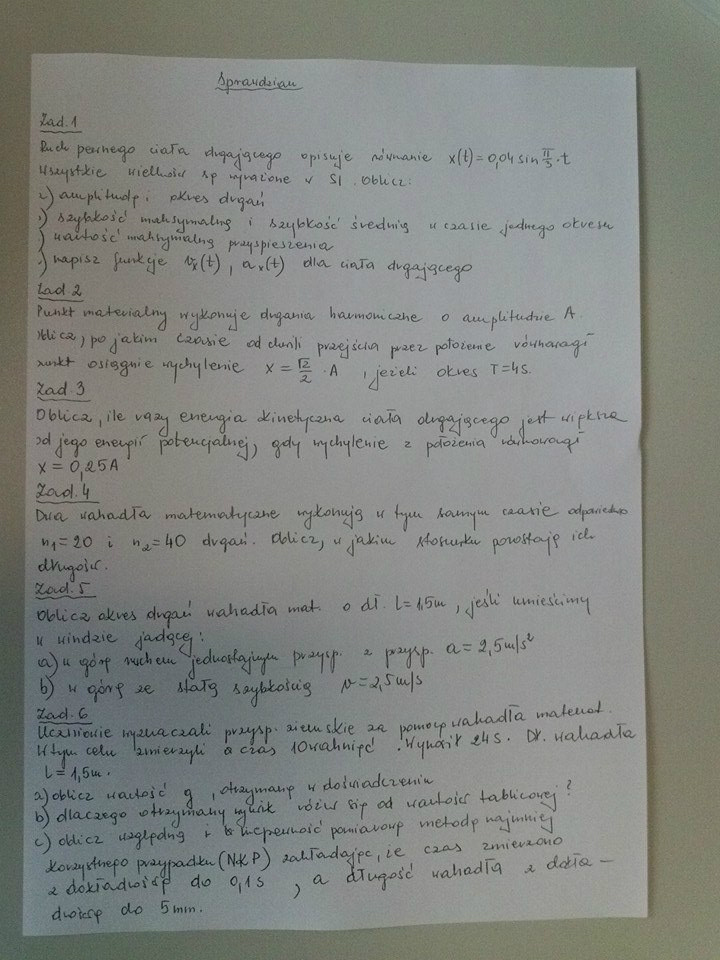 Sprawdzian
Zad. 1
Ruch pewnego ciała drgającego opisuje równanie x(t) = 0,04 sin π/5 · t
Wszystkie wielkości są wyrażone w SI. Oblicz:
amplitudę i okres drgań
) szybkość maksymalną i szybkość średnią w czasie jednego okresu
) wartość maksymalną przyspieszenia
) napisz funkcje vₓ(t), aₓ(t) dla ciała drgającego
Zad 2
Punkt materialny wykonuje drgania harmoniczne o amplitudzie A.
Oblicz, po jakim czasie od chwili przejścia przez położenie równowagi
punkt osiągnie wychylenie x = √2/2 · A, jeżeli okres T = 4s.
Zad. 3
Oblicz, ile razy energia kinetyczna ciała drgającego jest większa
od jego energii potencjalnej, gdy wychylenie z położenia równowagi
x = 0,25A
Zad. 4
Dwa wahadła matematyczne wykonują w tym samym czasie odpowiednio
n₁ = 20 i n₂ = 40 drgań. Oblicz, w jakim stosunku pozostają ich
długości.
Zad. 5
Oblicz okres drgań wahadła mat. o dł. L = 1,5m, jeśli umieścimy
w windzie jadącej:
a) w górę ruchem jednostajnym przysp. z przysp. a = 2,5 m/s²
b) w górę ze stałą szybkością v = 2,5 m/s
Zad. 6
Uczniowie wyznaczali przysp. ziemskie za pomocą wahadła matemat.
W tym celu zmierzyli czas 10 wahnięć. Wynosił 24s. Dł. wahadła
L = 1,5m.
a) oblicz wartość g, otrzymaną w doświadczeniu
b) dlaczego otrzymany wynik różni się od wartości tablicowej?
c) oblicz względną i niepewność pomiarową metodą najmniej
korzystnego przypadku (NKP) zakładając, że czas zmierzono
z dokładnością do 0,1s, a długość wahadła z dokła-
dnością do 5mm.